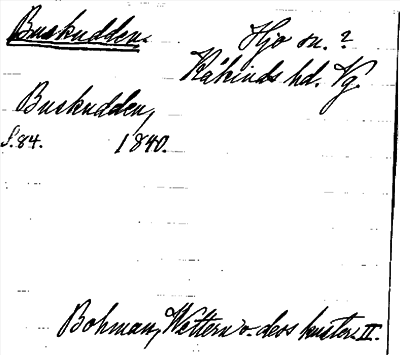 Buskudden.
Hjo sn. ?
Kåkinds hd. Vg.
Buskudden,
S. 84. 1840.
Bohman, Wettern o. dess kuster. II.